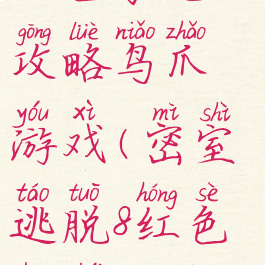 gōng lüè niǎo zhǎo
攻略鸟爪
yóu xì mì shì
游戏(密室
táo tuō hóng sè
逃脱8红色